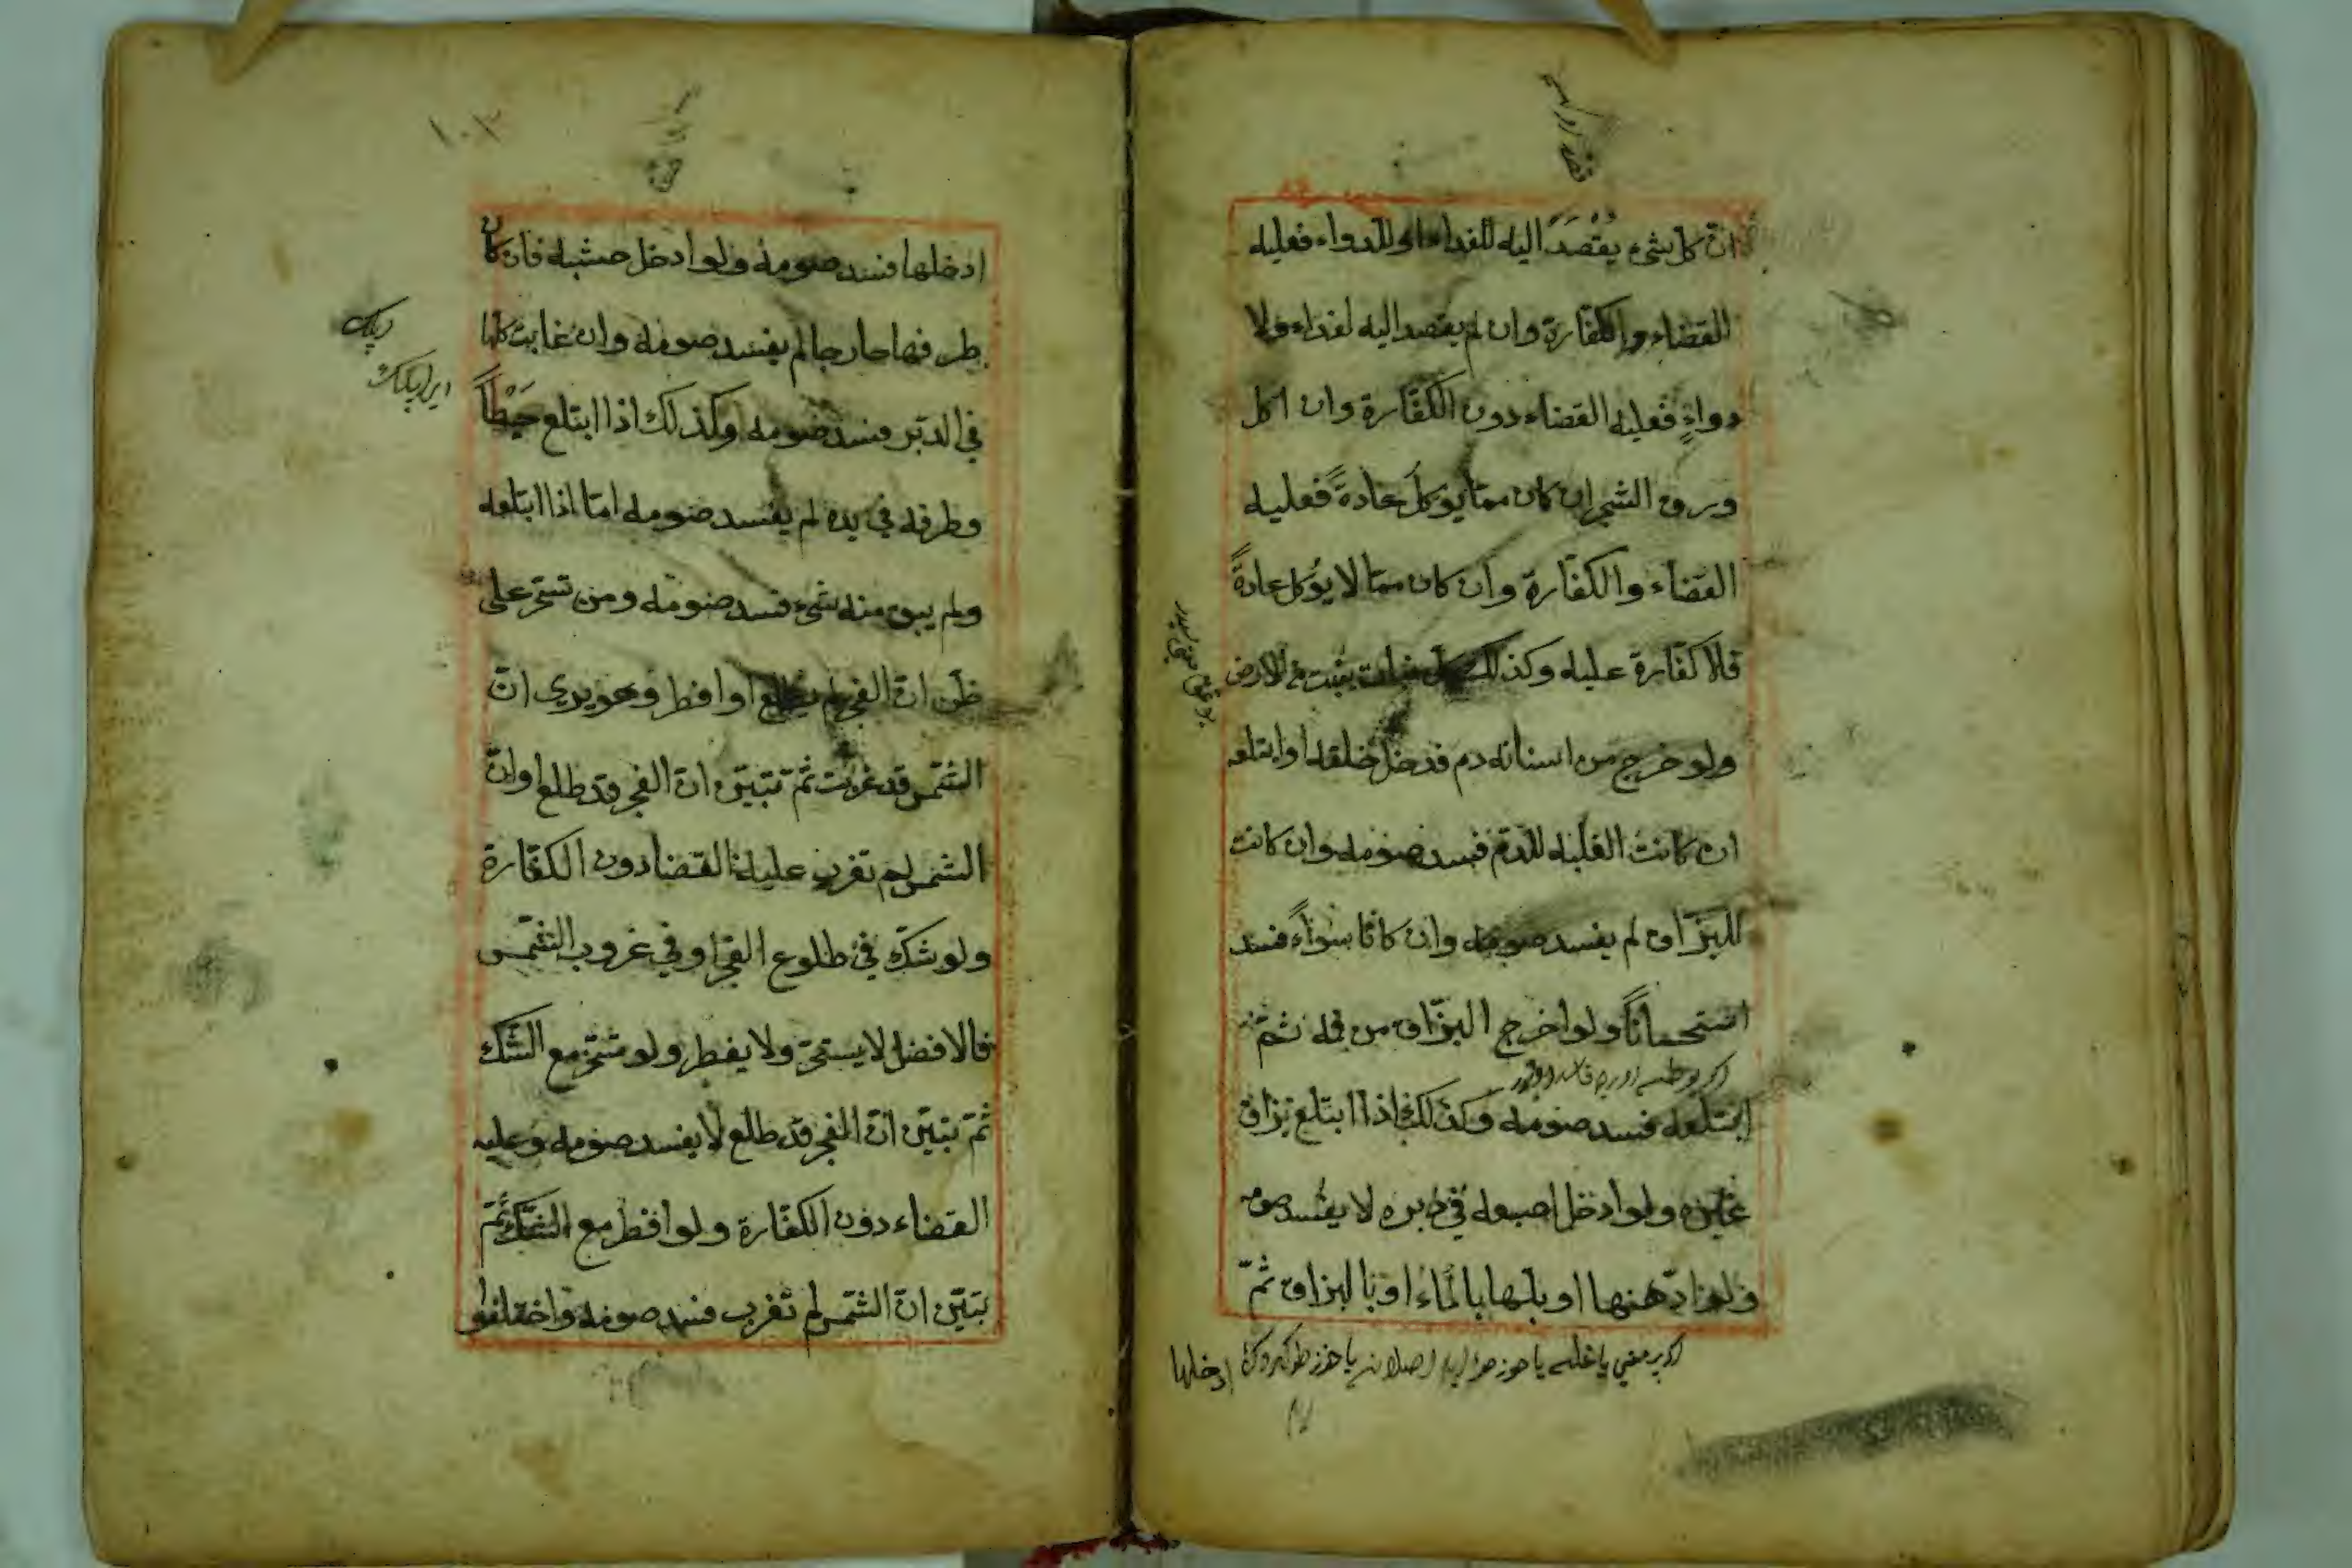 انّ كل شیء يُقْصَدُ اليه للغداء او للدواء فعليه
القضاء والكفّارة وان لم يقصد اليه لغداء ولا
دواءٍ فعليه القضاء دون الكفّارة وان اكل
ورق الشجر ان كان ممّا يؤكل عادةً فعليه
القضاء والكفّارة وان كان ممّا لا يؤكل عادةً
فلا كفّارة عليه وكذلك كل نبات ينبت فی الارض
ولو خرج من اسنانه دم فدخل حلقه او ابتلعه
ان كانت الغلبه للدّم فسد صومه وان كانت
للبزّاق لم يفسد صومه وان كانا سواءً فسد
استحساناً ولو اخرج البزّاق من فمه ثمّ
ابتلعه فسد صومه وكذلك اذا ابتلع بزاق
غيره ولو ادخل اصبعه فی دبره لا يفسد صومه
ولو ادّهنها او بلّها بالماء او بالبزاق ثمّ
ادخلها
١٠٢
ادخلها فسد صومه ولو ادخل خشبه فان كان
طرفها خارجا لم يفسد صومه وان غابت كلها
فی الدّبر فسد صومه وكذلك اذا ابتلع خَيْطاً
وطرفه فی يده لم يفسد صومه امّا اذا ابتلعه
ولم يبق منه شیء فسد صومه ومن تسحّر علی
ظنّ انّ الفجر لم يطلع او افطر وهو يری انّ
الشّمس قد غربت ثمّ تبيّن انّ الفجر قد طلع او انّ
الشّمس لم تغرب عليه القضا دون الكفّارة
ولو شكّ فی طلوع الفجر او فی غروب الشّمس
فالافضل لا يستحرّ ولا يفطر ولو تسحّر مع الشّك
ثمّ تبيّن انّ الفجر قد طلع لا يفسد صومه وعليه
القضاء دون الكفّارة ولو افطر مع الشّكّ ثمّ
تبيّن انّ الشّمس لم تغرب فسد صومه واختلفوا